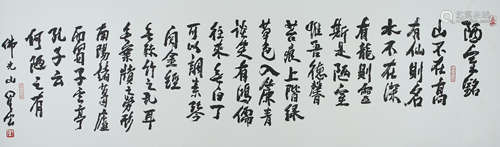 陋室銘
山不在高
有仙則名
水不在深
有龍則靈
斯是陋室
惟吾德馨
苔痕上階綠
草色入簾青
談笑有鴻儒
往來無白丁
可以調素琴
閱金經
無絲竹之亂耳
無案牘之勞形
南陽諸葛廬
西蜀子雲亭
孔子云
何陋之有
佛光山星雲